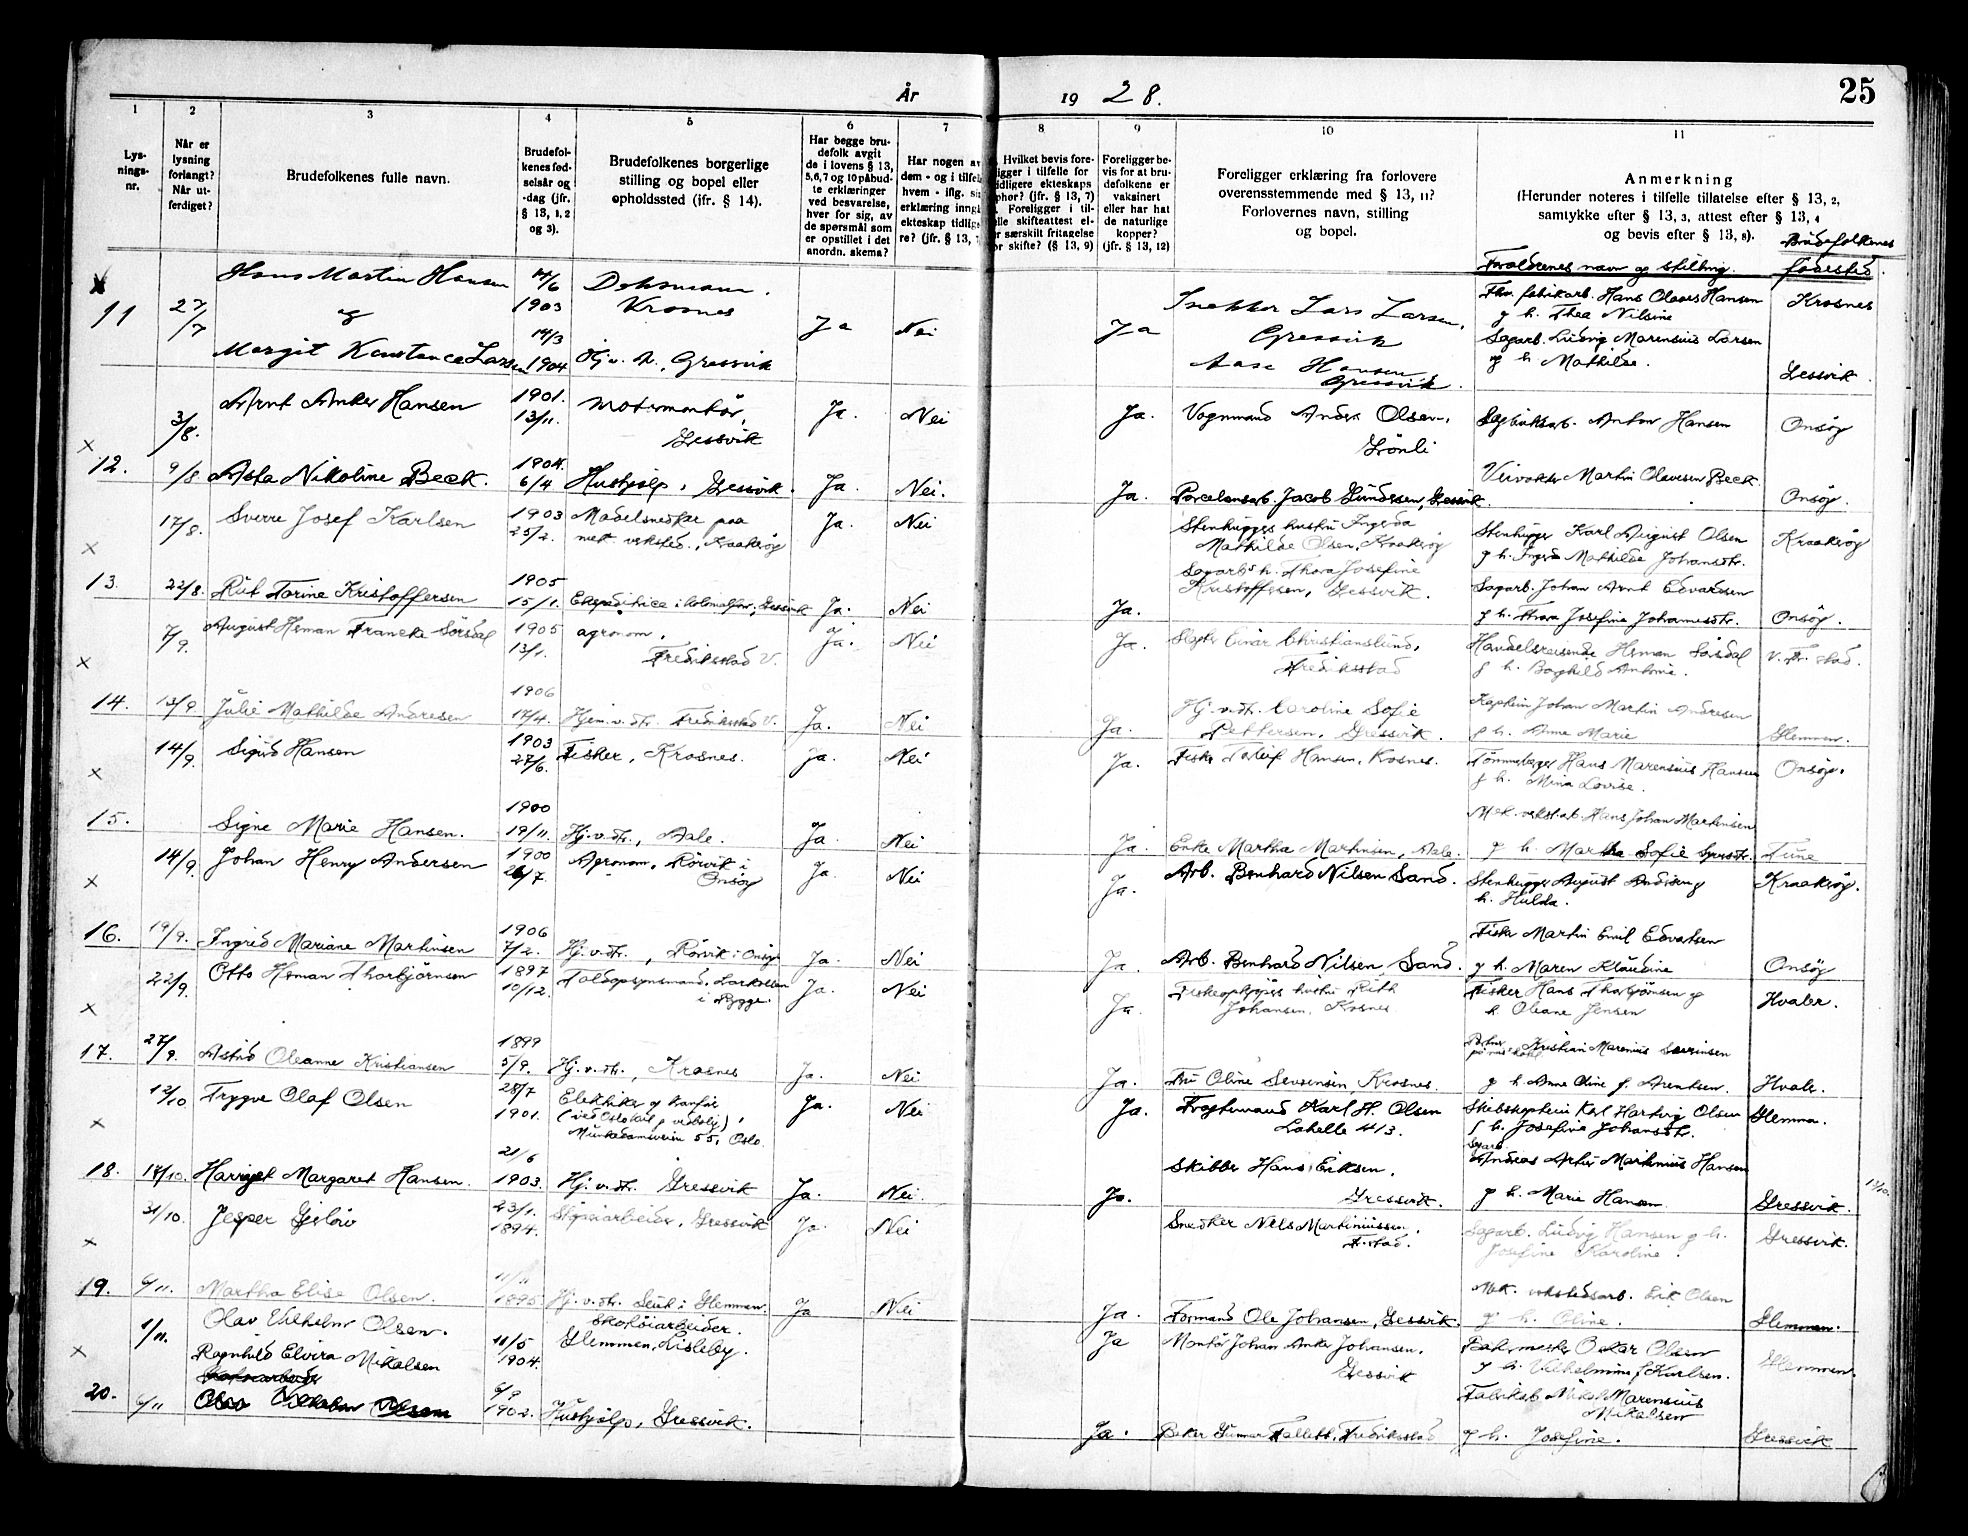 År 1928. 25
1 2 3 4 5 6 7 8 9 10 11
Lys-
nings-
nr.
Når er
lysning
forlangt?
Når ut-
ferdiget?
Brudefolkenes fulle navn.
Brudefol-
kenes fød-
selsår og
-dag (jfr.
§ 13, 1, 2
og 3).
Brudefolkenes borgerlige
stilling og bopel eller
opholdssted (ifr. § 14).
Har begge bru-
defolk avgit
de i lovens § 13,
5,6,7 og 10 påbud-
te erklæringer
ved besvarelse,
hver for sig, av
de spørsmål som
er opstillet i det
anordn. skema?
Har nogen av
dem - og i tilfelle
hvem - iflg. sin
erklæring inngå
ekteskap tidlige-
re? (jfr. § 13,
Hvilket bevis fore-
ligger i tilfelle for
tidligere ekteskaps
ophør? (jfr. § 13, 7)
Foreligger i til-
felle skifteattest el-
ler særskilt fritagelse
for skifte? (§ 13, 9)
Foreligger be-
vis for at bru-
defolkene er
vaksinert
eller har hat
de naturlige
kopper?
(jfr. § 13, 12)
Foreligger erklæring fra forlovere
overensstemmende med § 13, 11?
Forlovernes navn, stilling
og bopel.
Anmerkning
(Herunder noteres i tilfelle tillatelse efter § 13, 2,
samtykke efter § 13, 3, attest efter § 13, 4
og bevis efter § 13, 8).
Forældrenes navn og stilling. Brudefolkenes
fødested.
11 27/7 Hans Martin Hansen 1903 Krosnes Ja Nei Ja Snekker Lars Larsen, Gressvik Fhv. fabrikarb. Hans Olaves Hansen
g h. Thea Nilsine Krosnes
og
Margit Konstance Larsen 14/3 1904 Hj. v. d., Gressvik Aase Hansen Gressvik. Sagarb. Ludvig Marensius Larsen
og h. Mathilde. Gressvik
3/8. Arnt Anker Hansen 1901. 13/11. Motormontör, Gressvik Ja. Nei Ja. Vognmand Anders Olsen, Grönli Sagbruksarb. Anton Hansen Onsöy
12. 9/8 Asta Nikoline Beck. 1904. 6/4 Hushjelp, Gressvik. Ja. Nei. Ja. Porcelensarb. Jacob Gundersen, Gressvik. Veivokter Martin Olavesen Beck Onsöy.
17/8. Sverre Josef Karlsen 1903 25/2. Modelsnedker paa
mek. verksted., Kraakeröy Ja. Nei Stenhuggers hustru Ingerda
Mathilde Olsen, Kraakeröy Stenhugger Karl August Olsen
g h. Ingrd Mathilde Johansdtr. Kraakeröy
13. 22/8. Rut Torine Kristoffersen 1905 15/1. Ekspeditrice i kolonialforr., Gressvik Ja. Nei Ja. Sagarb's h. Thora Josefine
Kristoffersen, Gressvik. Sagarb. Johan Arnt Edvardsen
g h. Thora Josefine Johannesdtr. Onsöy.
7/9. August Herman Francke Sörsdal 1905 13/1. agronom,
Fredriksstad V. Ja. Nei Ja. Einar Christianslund,
Fredriksstad Handelsreisende Herman Sörsdal
g h. Borghild Antonie. V. Fr. stad.
14. 13/9 Julie Mathilde Andresen 1906 17/4. Hjem. v. dtr. Fredriksstad V. Ja. Nei Ja. Hj. v. dtr. Caroline Sofie
Pettersen, Gressvik. Kaptein Johan Martin Andresen
g h. Anna Marie Glemmen.
14/9. Sigurd Hansen 1903 27/6. Fisker, Krosnes. Ja. Nei Ja. Fisker Torleif Hansen, Krosnes. Hans Marensius Hansen
g h. Mina Lovise. Onsöy.
15. Signe Marie Hansen. 1900 19/11. Hj. v. dtr., Aale. Ja Nei Ja. Enke Martha Martinsen, Aale. Mek. verkst.arb. Hans Johan Martinsen
g h. Martha Sofie Tune
14/9. Johan Henry Andersen 1900 Agronom, Rörvik i
Onsöy Ja. Nei Ja. Arb. Bernhard Nilsen Sand. Stenhugger August Andersen g
h. Hulda. Kraakeröy.
16. 19/9. Ingrid Mariane Martinsen 1906 7/2. Hj. v. dtr., Rörvik i Onsöy Ja. Nei Ja. Arb. Bernhard Nilsen, Sand. Fisker Martin Emil Edvartsen
g h. Maren Klaudine Onsöy
22/9. Otto Herman Thorbjörnsen 1897 10/12. Toldopsynsmand, Larkollen
i Rygge. Ja. Nei Ja. Fiskeopkjöpers hustru Ruth
Johansen, Krosnes Fisker Hans Thorbjörnsen g
h. Oleane Jensen Hvaler.
17. 27/9. Astrid Oleanne Kristiansen 1899 5/9. Hj. v. dtr., Krosnes Ja. Nei Ja. Fru Oline Severinsen Krosnes. Kristian Marenius Severinsen
g h. Anne Oline f. Arentsen. Hvaler.
12/10 Trygve Olaf Olsen 28/7 1901. Elektriker og
Munkedamsveien 55, Oslo. Ja. Nei Ja. Fragtemand Karl H. Olsen
Lahelle 413. Skibskaptein Karl Hartvig Olsen
g h. Josefine Johansdtr. Glemmen.
18. 17/10. Harriet Margaret Hansen. 21/6 1903. Hj. v. dtr. Gressvik Ja. Nei. Ja. Skibber Hans Eriksen,
Gressvik. Sagarb. Andreas Artur Martinius Hansen
g h. Marie Hansen Gressvik. 13/10.
31/10. Jesper Gjölöv 23/1. 1894. Sliperiarbeider, Gressvik Ja. Nei Snedker Nels Martiniussen,
F.stad. Sagarb. Ludvig Hansen g h.
Josefine Karoline. Gressvik.
19. 6/11. Martha Elise Olsen. 11/11 1895 Hj. v. dtr. i Glemmen. Ja Nei Ja. Formand Ole Johansen, Gressvik. Mek. verkstedsarb. Erik Olsen
g h. Oline. Glemmen.
1/11. Olav Vilhelm Olsen. 11/5 1904. Skotöiarbeider.
Glemmen, Lisleby. Ja Montör Johan Anker Johansen,
Gressvik Oskar Olsen
g h. Vilhelmine f. Karlsen. Glemmen.
20. 6/11 Ragnhild Elvira Mikalsen
Olav Vilhelm Olsen 6/9 1902. Hushjelp, Gressvik. Ja. Baker Gunnar Falleth, Fredriksstad Fabrikarb. Mikal Marensius
Mikalsen
g h. Josefine. Gressvik